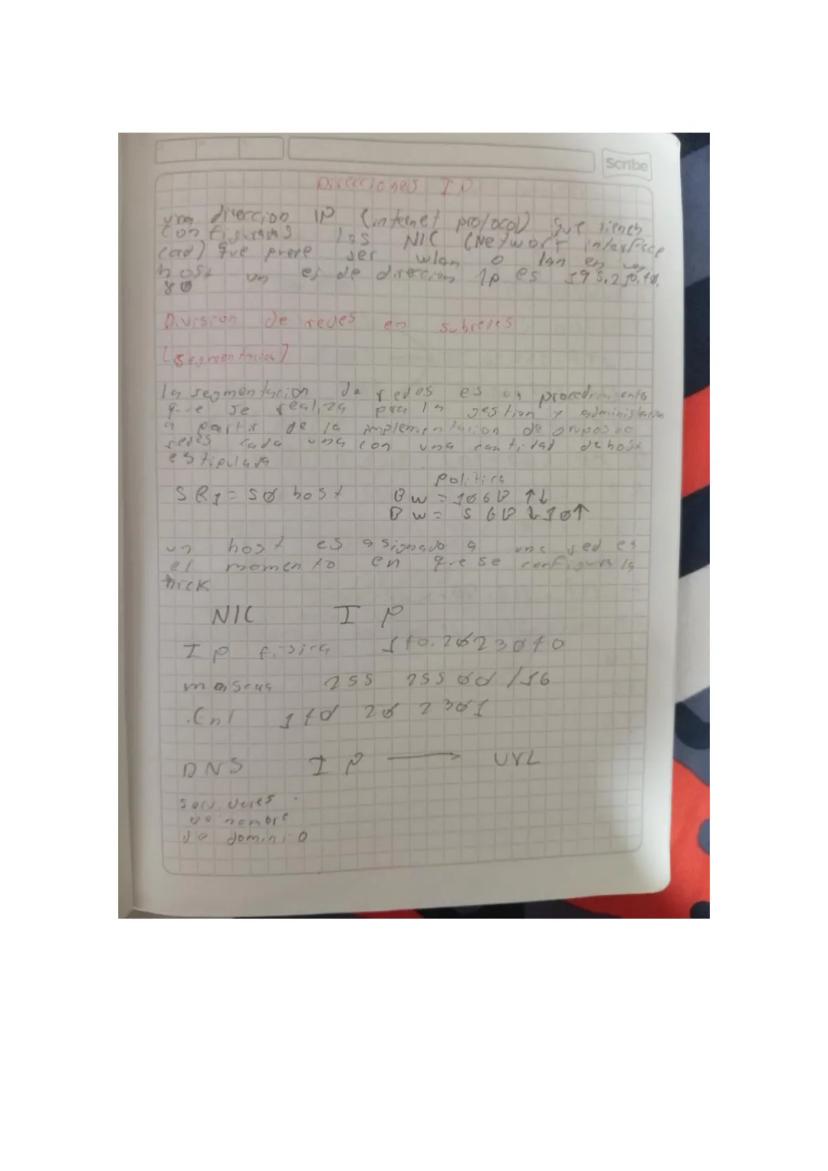 Scribe
Direcciones IP
una direccion IP (internet protocol) que tienen
configuradas las NIC (Network interface
card) que puede ser wlan o lan en un
host un es de direccion ip es
80
Division de redes en subredes
(segmentacion)
la segmentacion de redes es un procedimiento
que se realiza para la gestion y administracion
a partir de la implementacion de grupos de
redes cada una con una cantidad de host
estipulada
Politica
SR1 = 50 host BW = 10 GB ↑↓
BW = 5 GB ↓ 10↑
un host es asignado a una red es
el momento en que se configura la
NIC IP
Ip fisica
mascara 255 255 00 /16
DNS IP → URL
servidores
de nombre
de dominio